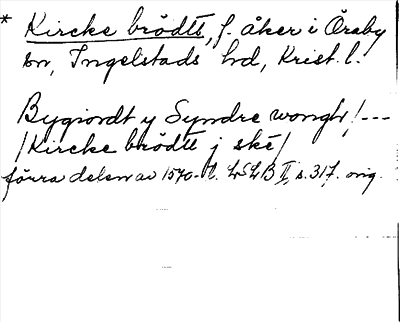 * Kircke brödtt, f. åker i Öraby
sn, Ingelstads hd, Krist. l.
Bygiordt y Syndre wongh, /---
/Kircke brödtt j ske/
förra delen av 1570-t. LSLB II, s. 317. orig.